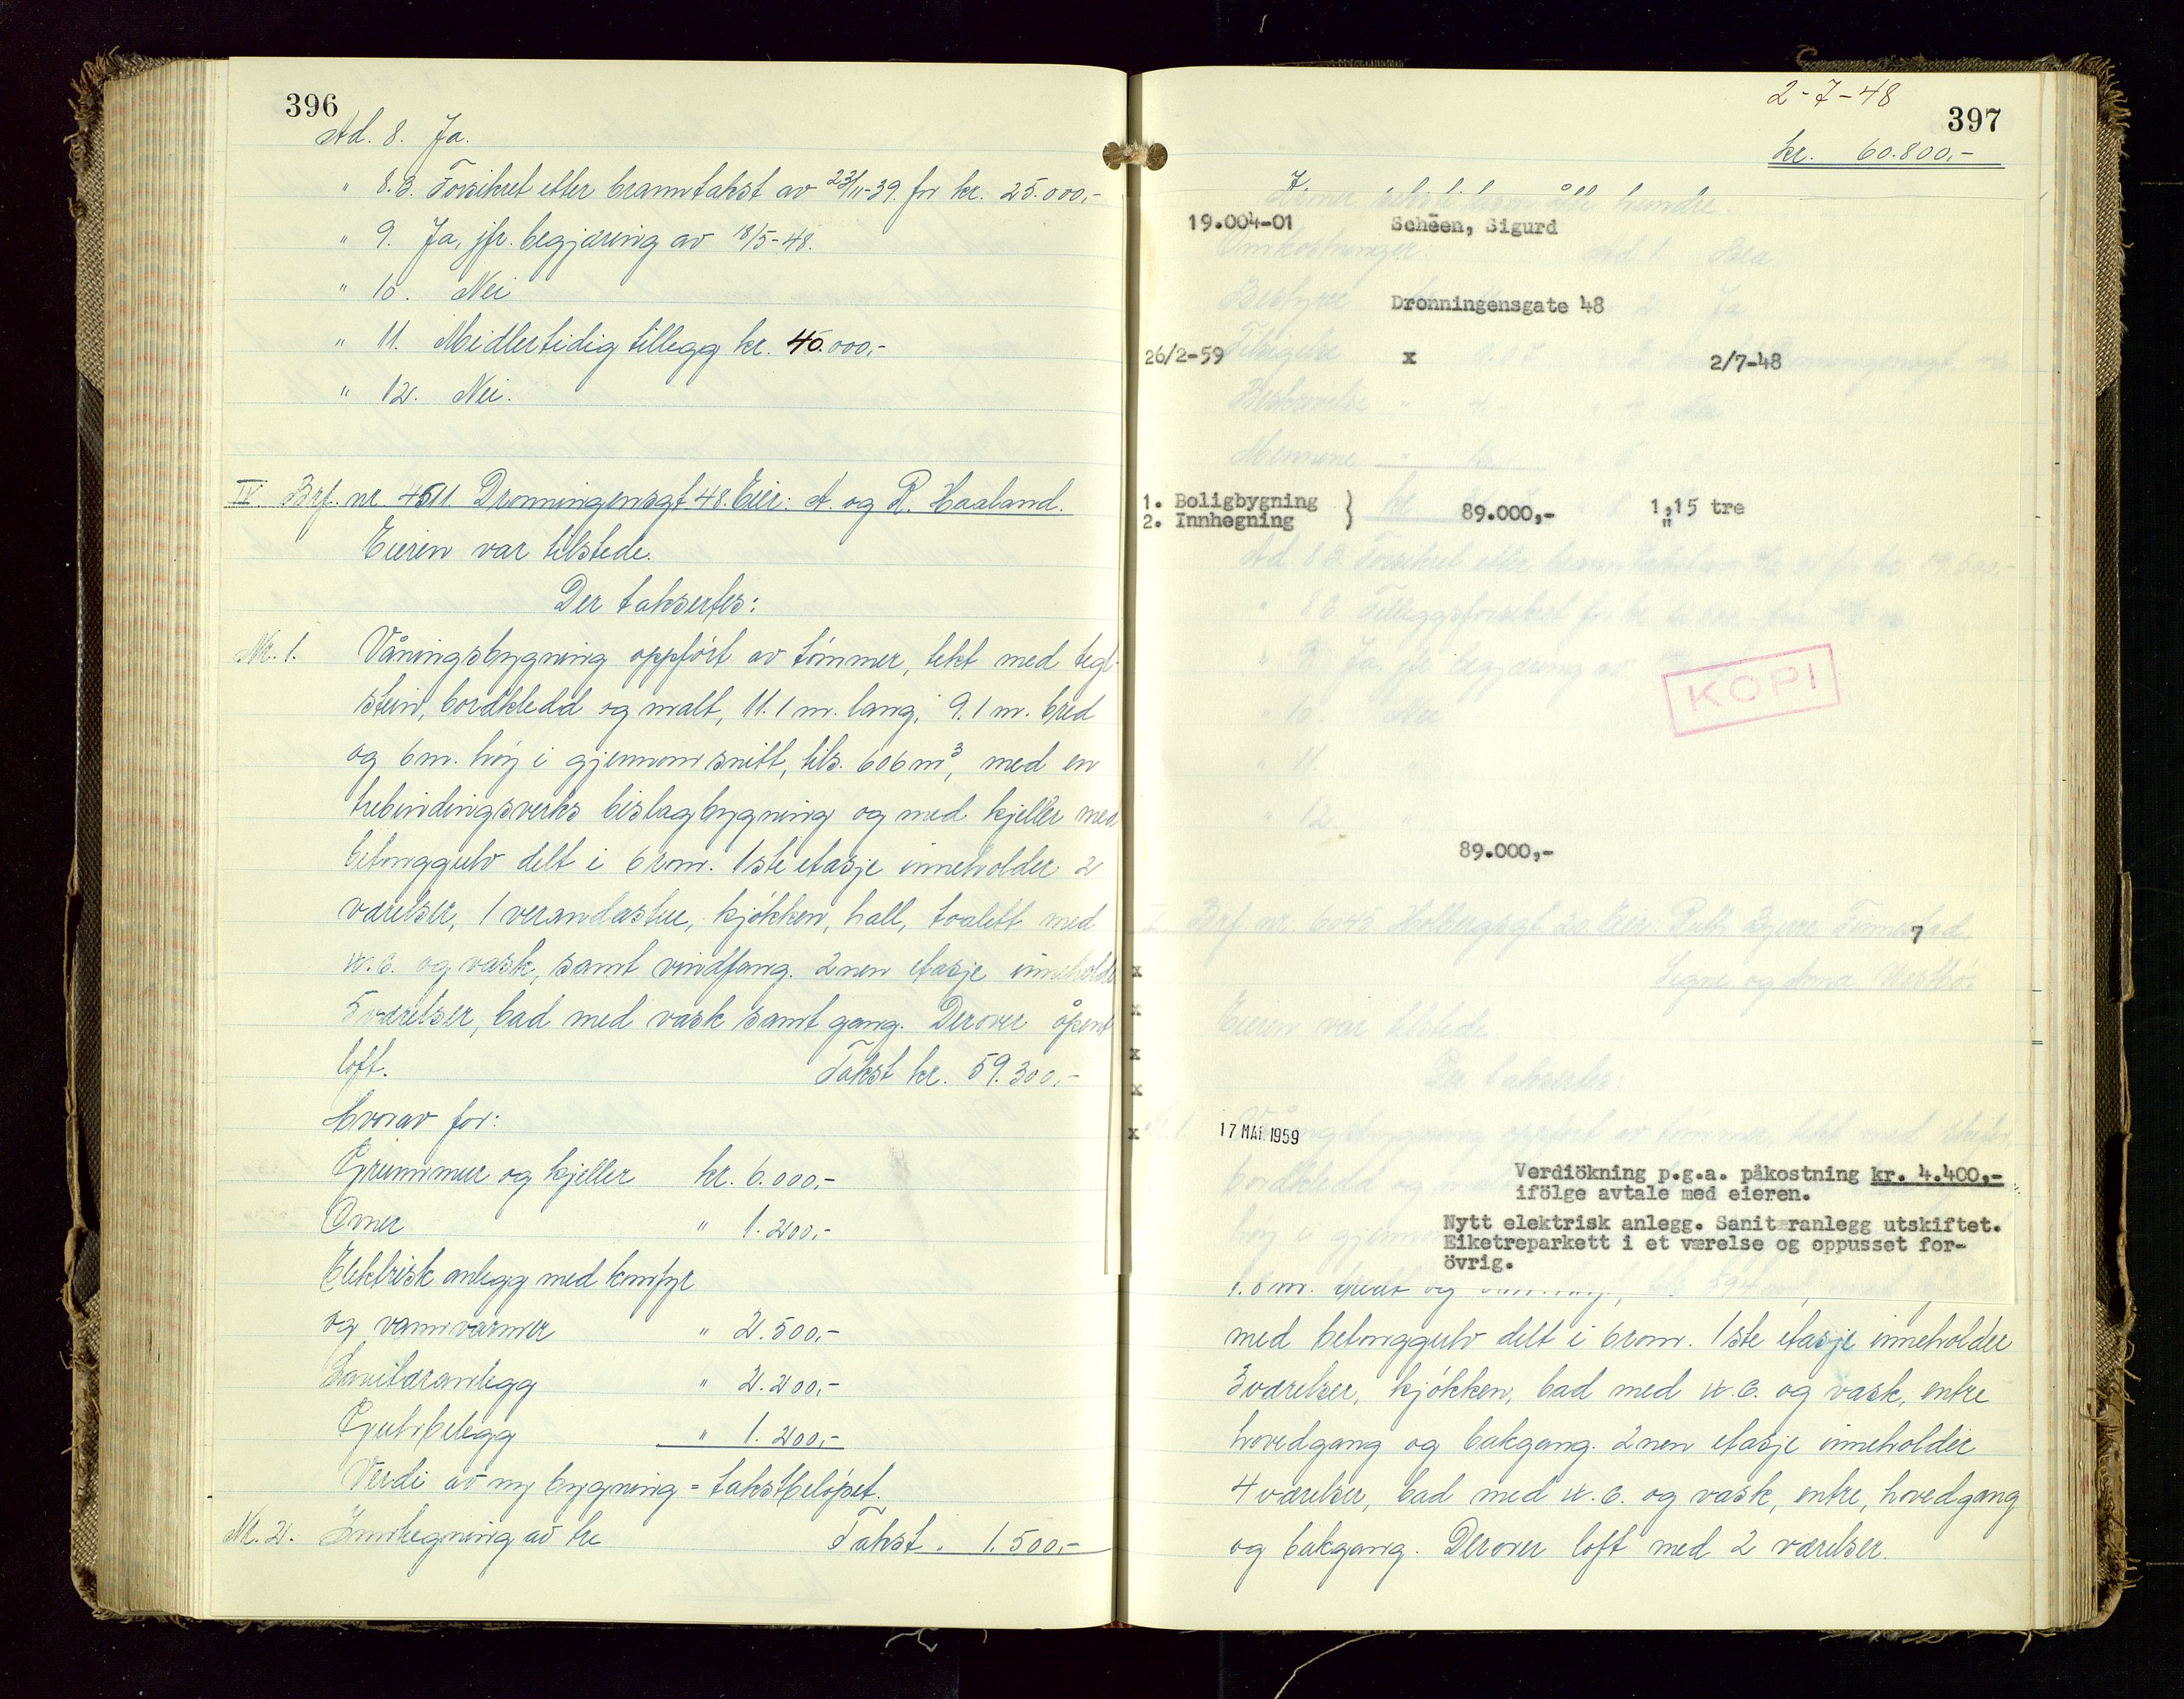 396
Ad. 8. Ja.
" 8.B. Forsikret etter branntakst av 23/11-39. for kr. 25.000,-
" 9. Ja, jfr. begjæring av 18/5-48.
" 10. Nei
" 11. Midlertidig tillegg kr. 40.000,-
" 12. Nei.
IV. Brf. nr 4511. Dronningensgt 48. Eier: A. og R. Haaland.
Eieren var tilstede.
Der taksertes:
Nr. 1. Våningsbygning oppført av tømmer, tekt med tegl-
stein, bordkledd og malt, 11.1 m. lang, 9.1 m. bred
og 6 m. høy i gjennomsnitt, tils. 606 m³, med en
trebindingsverks bislagbygning og med kjeller med
betonggulv delt i 6 rom. 1ste etasje inneholder 2
værelser, 1 verandastue, kjøkken, hall, toalett med
W.C. og vask, samt vindfang. 2nen etasje inneholder
5 værelser, bad med vask samt gang. Derover åpent
loft. Takst kr. 59.300,-
Hvorav for:
Grunnmur og kjeller kr. 6.000,-
Ovner " 1.200,-
Elektrisk anlegg med komfyr
og vannvarmer " 2.500,-
Sanitæranlegg " 2.200,-
Gulvbelegg " 1.200,-
Verdi av ny bygning = takstbeløpet.
Nr. 2. Innhegning av tre Takst. 1.500,-
2-7-48
397
kr. 60.800,-
Kroner seksti tusen åtte hundre
19.004-01 Schëen, Sigurd
Omkostninger: Ad 1 Bra
Bestyrer 2 Ja
Dronningensgate 48
26/2-59 x 2/7-48
Beskrivelse " 4,- " 4 Nei
Mennene
1. Boligbygning } 89.000,- 1,15 tre
2. Innhegning "
Ad. 8 B. Forsikret etter branntakst av
" 8 C. Tilleggsforsikret for kr
" 9. Ja, jfr begjæring av
KOPI
" 10. Nei
" 11. "
" 12. "
89.000,-
V. Brf. nr. 6045 Holbergsgt 20 Eier: Ruth Bjerre Finnestad
7
Signe og Anna
x
x
Eieren var tilstede
x
Der taksertes
x
x
17 MAI 1959
Verdiökning p.g.a. påkostning kr. 4.400,-
ifölge avtale med eieren.
Nytt elektrisk anlegg. Sanitæranlegg utskiftet.
Eiketreparkett i et værelse og oppusset for-
övrig.
med betonggulv delt i 6 rom. 1ste etasje inneholder
3 værelser, kjøkken, bad med W.C. og vask, entre
hovedgang og bakgang. 2nen etasje inneholder
4 værelser, bad med W.C. og vask, entre, hovedgang
og bakgang. Derover loft med 2 værelser.